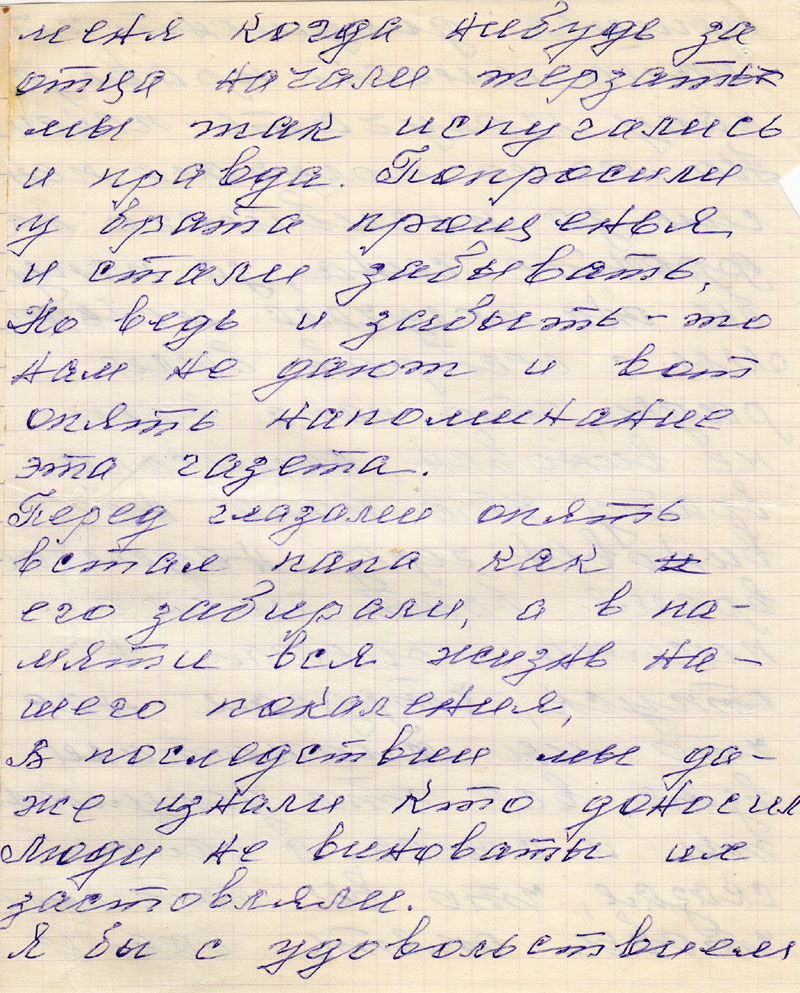 меня когда нибудь за
отца начали терзать
мы так испугались
и правда. Попросили
у брата прощенья
и стали забывать,
Но ведь и забыть-то
нам не дают и вот
опять напоминание
эта газета.
Перед глазами опять
встал папа как и
его забирали, а в па-
мяти вся жизнь на-
шего покаления,
В последствии мы да-
же узнали кто доносил
Люди не виноваты их
застовляли.
Я бы с удовольствием